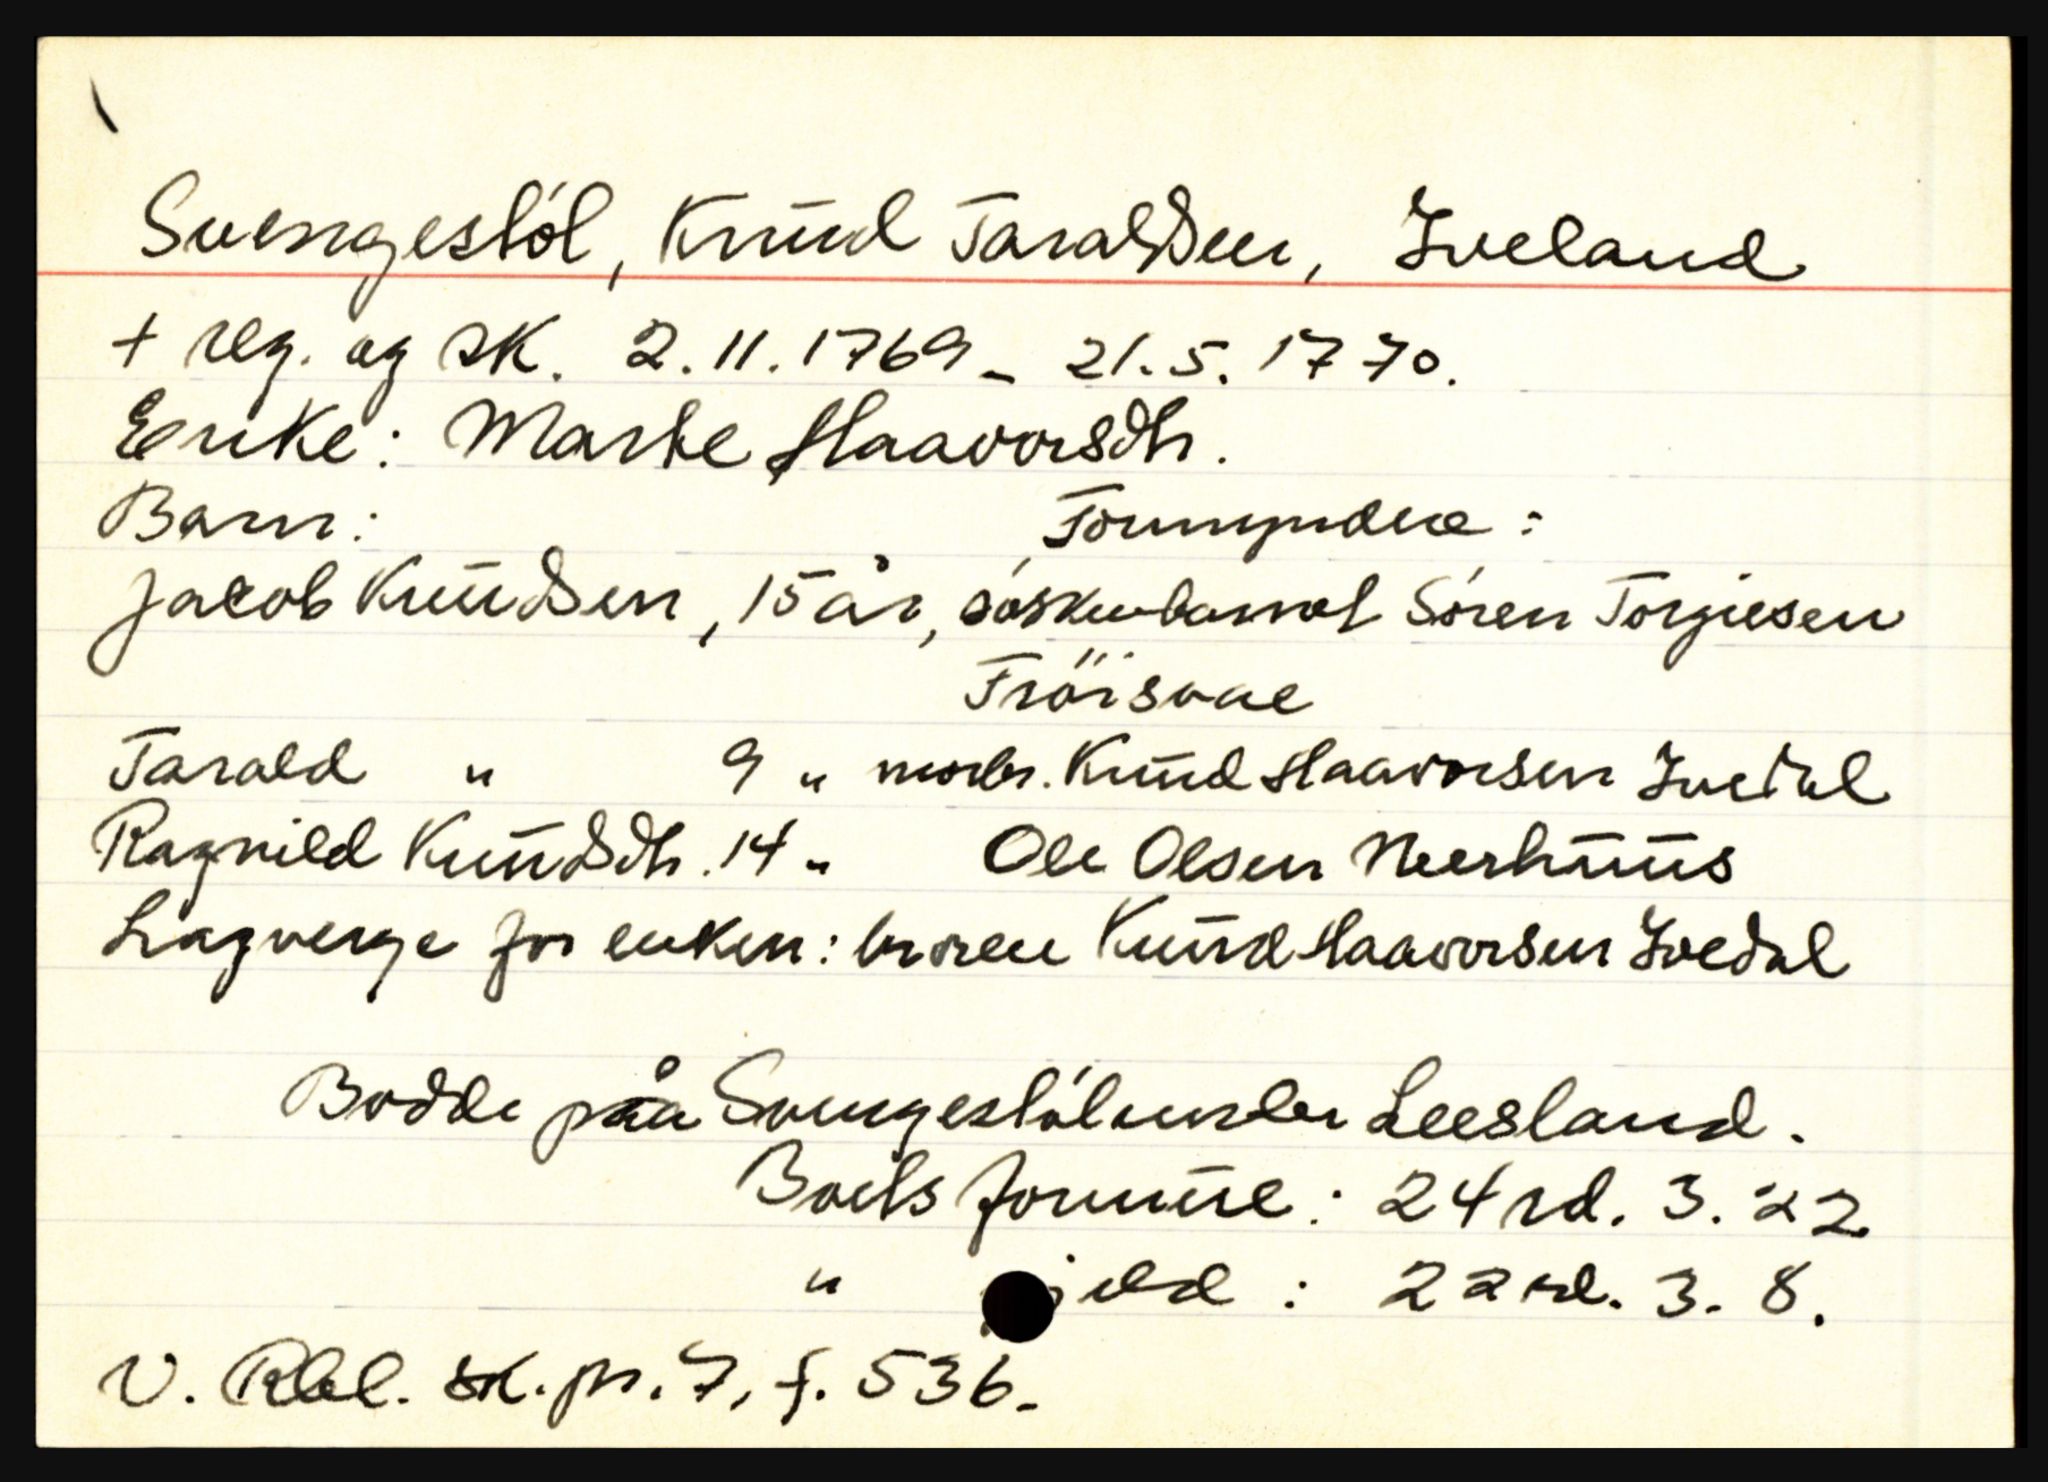 Svengestöl, Knud Taraldsen, Iveland
+ reg. og sk. 2.11.1769 - 21.5.1770.
Enke: Marte Haavorsdtr.
Barn: Formyndere:
Jacob Knudsen, 15 år, söskenbarnet Sören Torgiesen
Tröisaae
Tarald " 9 " morbr. Knud Haavorsen Ivedal
Ragnild Knudsdtr. 14 " Ole Olsen Neerhuus
Lagverge for enken: broren Knud Haavorsen Ivedal
Bodde på Svengestöl under Leesland.
Boets formue: 24 rd. 3. 22
" gjeld : 22 rd. 3. 8.
V. Rbl. sk.pr. 7, f. 536.